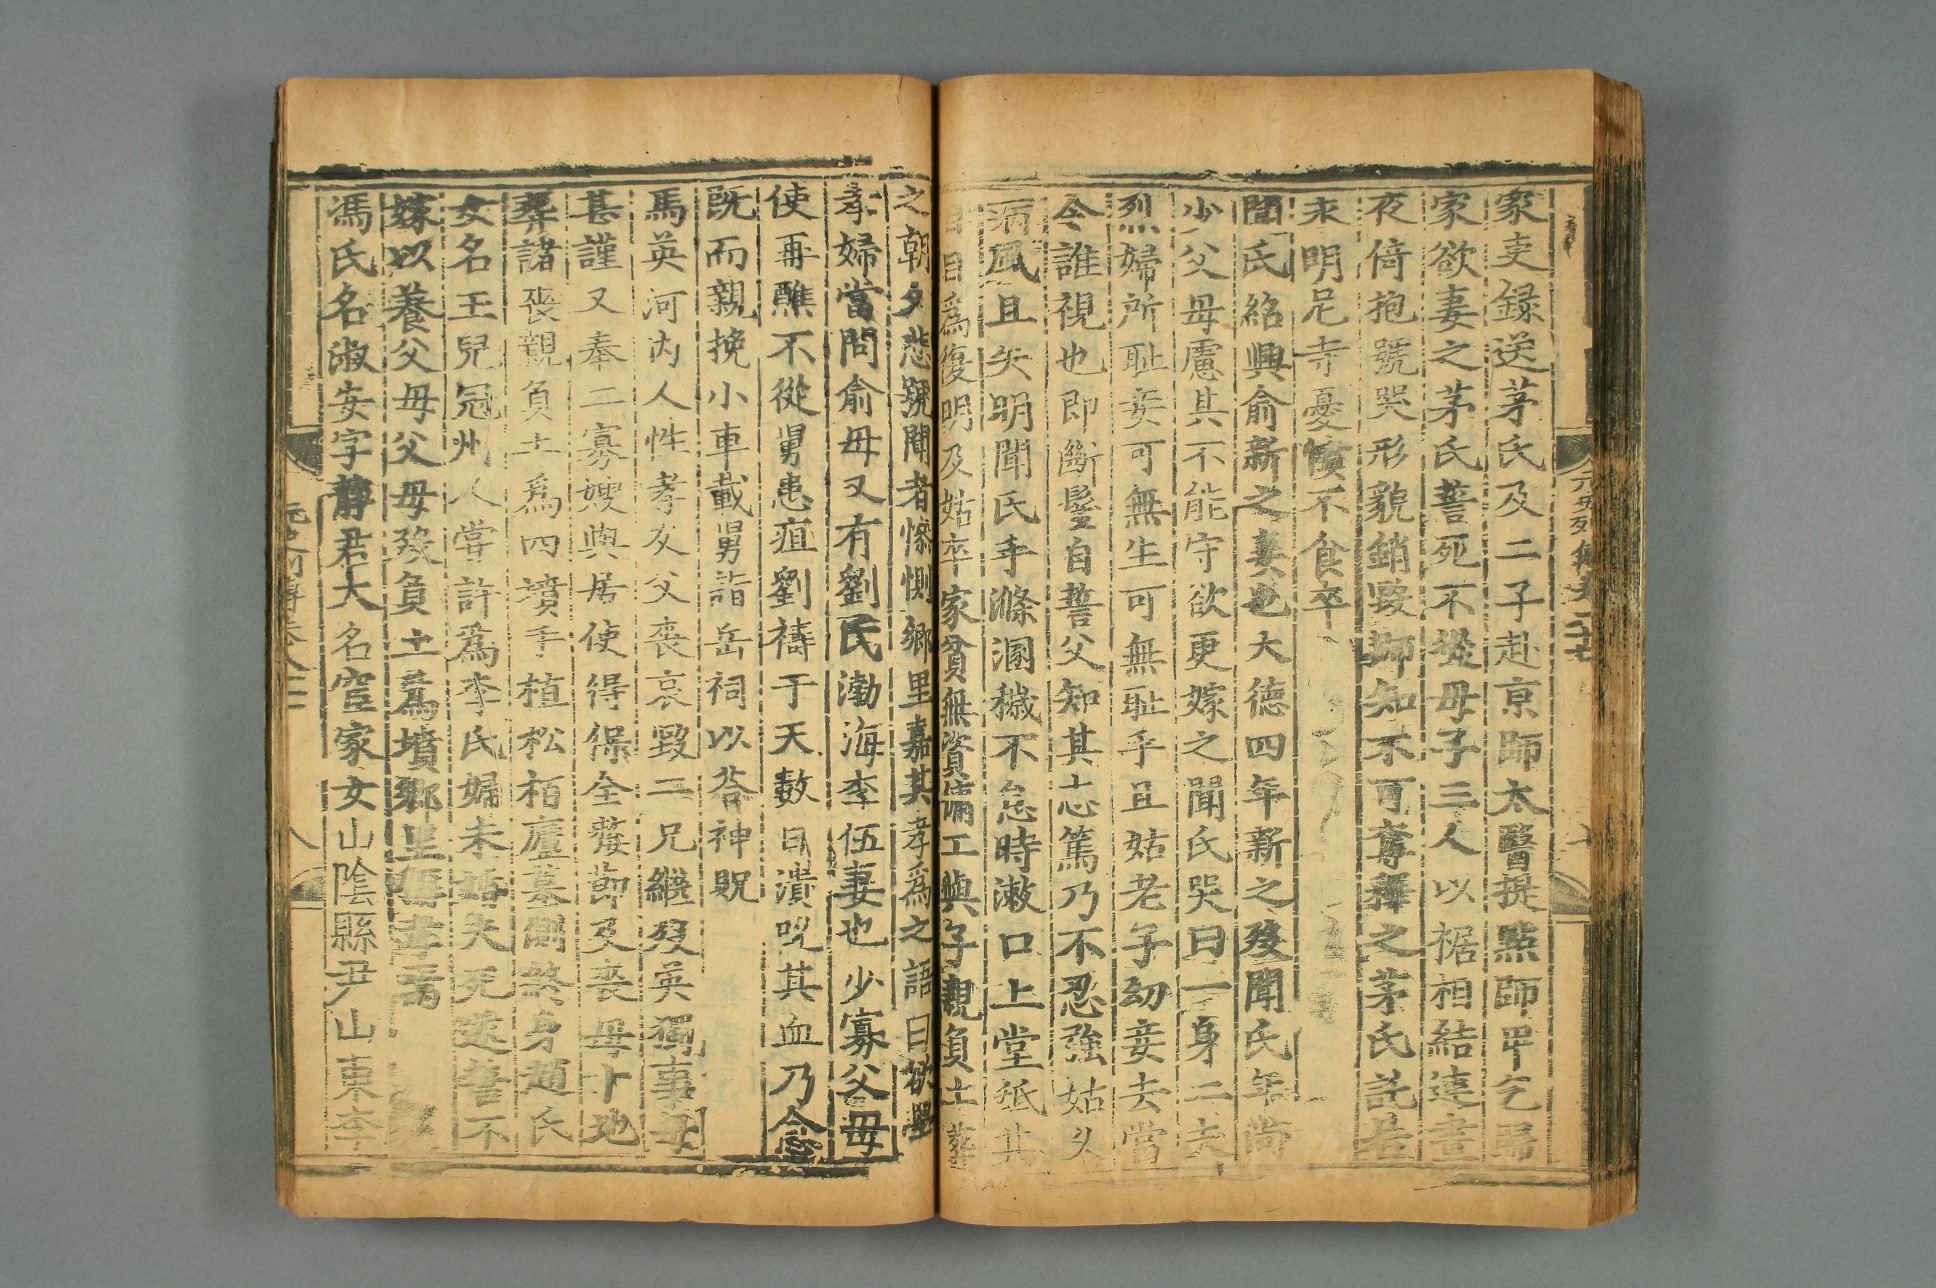 家吏録送茅氏及二子赴京師太醫提點師甲乞歸
家欲妻之茅氏誓死不從母子三人以裾相結連晝
夜倚抱號哭形貌銷毀師知不可奪釋之茅氏託居
永明尼寺憂憤不食卒
聞氏紹興俞新之妻也大德四年新之歿聞氏年尚
少父母慮其不能守欲更嫁之聞氏哭曰一身二夫
烈婦所耻妾可無生可無耻乎且姑老子幼妾去當
令誰視也即斷髮自誓父知其志篤乃不忍強姑久
病風且失明聞氏手滌溷穢不怠時漱口上堂舐其
目目爲復明及姑卒家貧無資傭工與子親負土葬
之朝夕悲號聞者慘惻鄉里嘉其孝爲之語曰欲學
孝婦當問俞母又有劉氏渤海李伍妻也少寡父母
使再醮不從舅患疽劉禱于天數日潰吮其血乃愈
既而親挽小車載舅詣岳祠以荅神貺
馬英河内人性孝友父喪哀毀二兄繼歿英獨事母
甚謹又奉二寡嫂與居使得保全齧節及喪母卜地
葬諸喪親負土爲四墳手植松栢廬墓側終身趙氏
女名玉兒冠州人嘗許爲李氏婦未婚夫死遂誓不
嫁以養父母父母歿負土爲墳鄉里稱孝焉
馮氏名淑安字靜君大名宦家女山陰縣尹山東李
元史列傳卷八十七